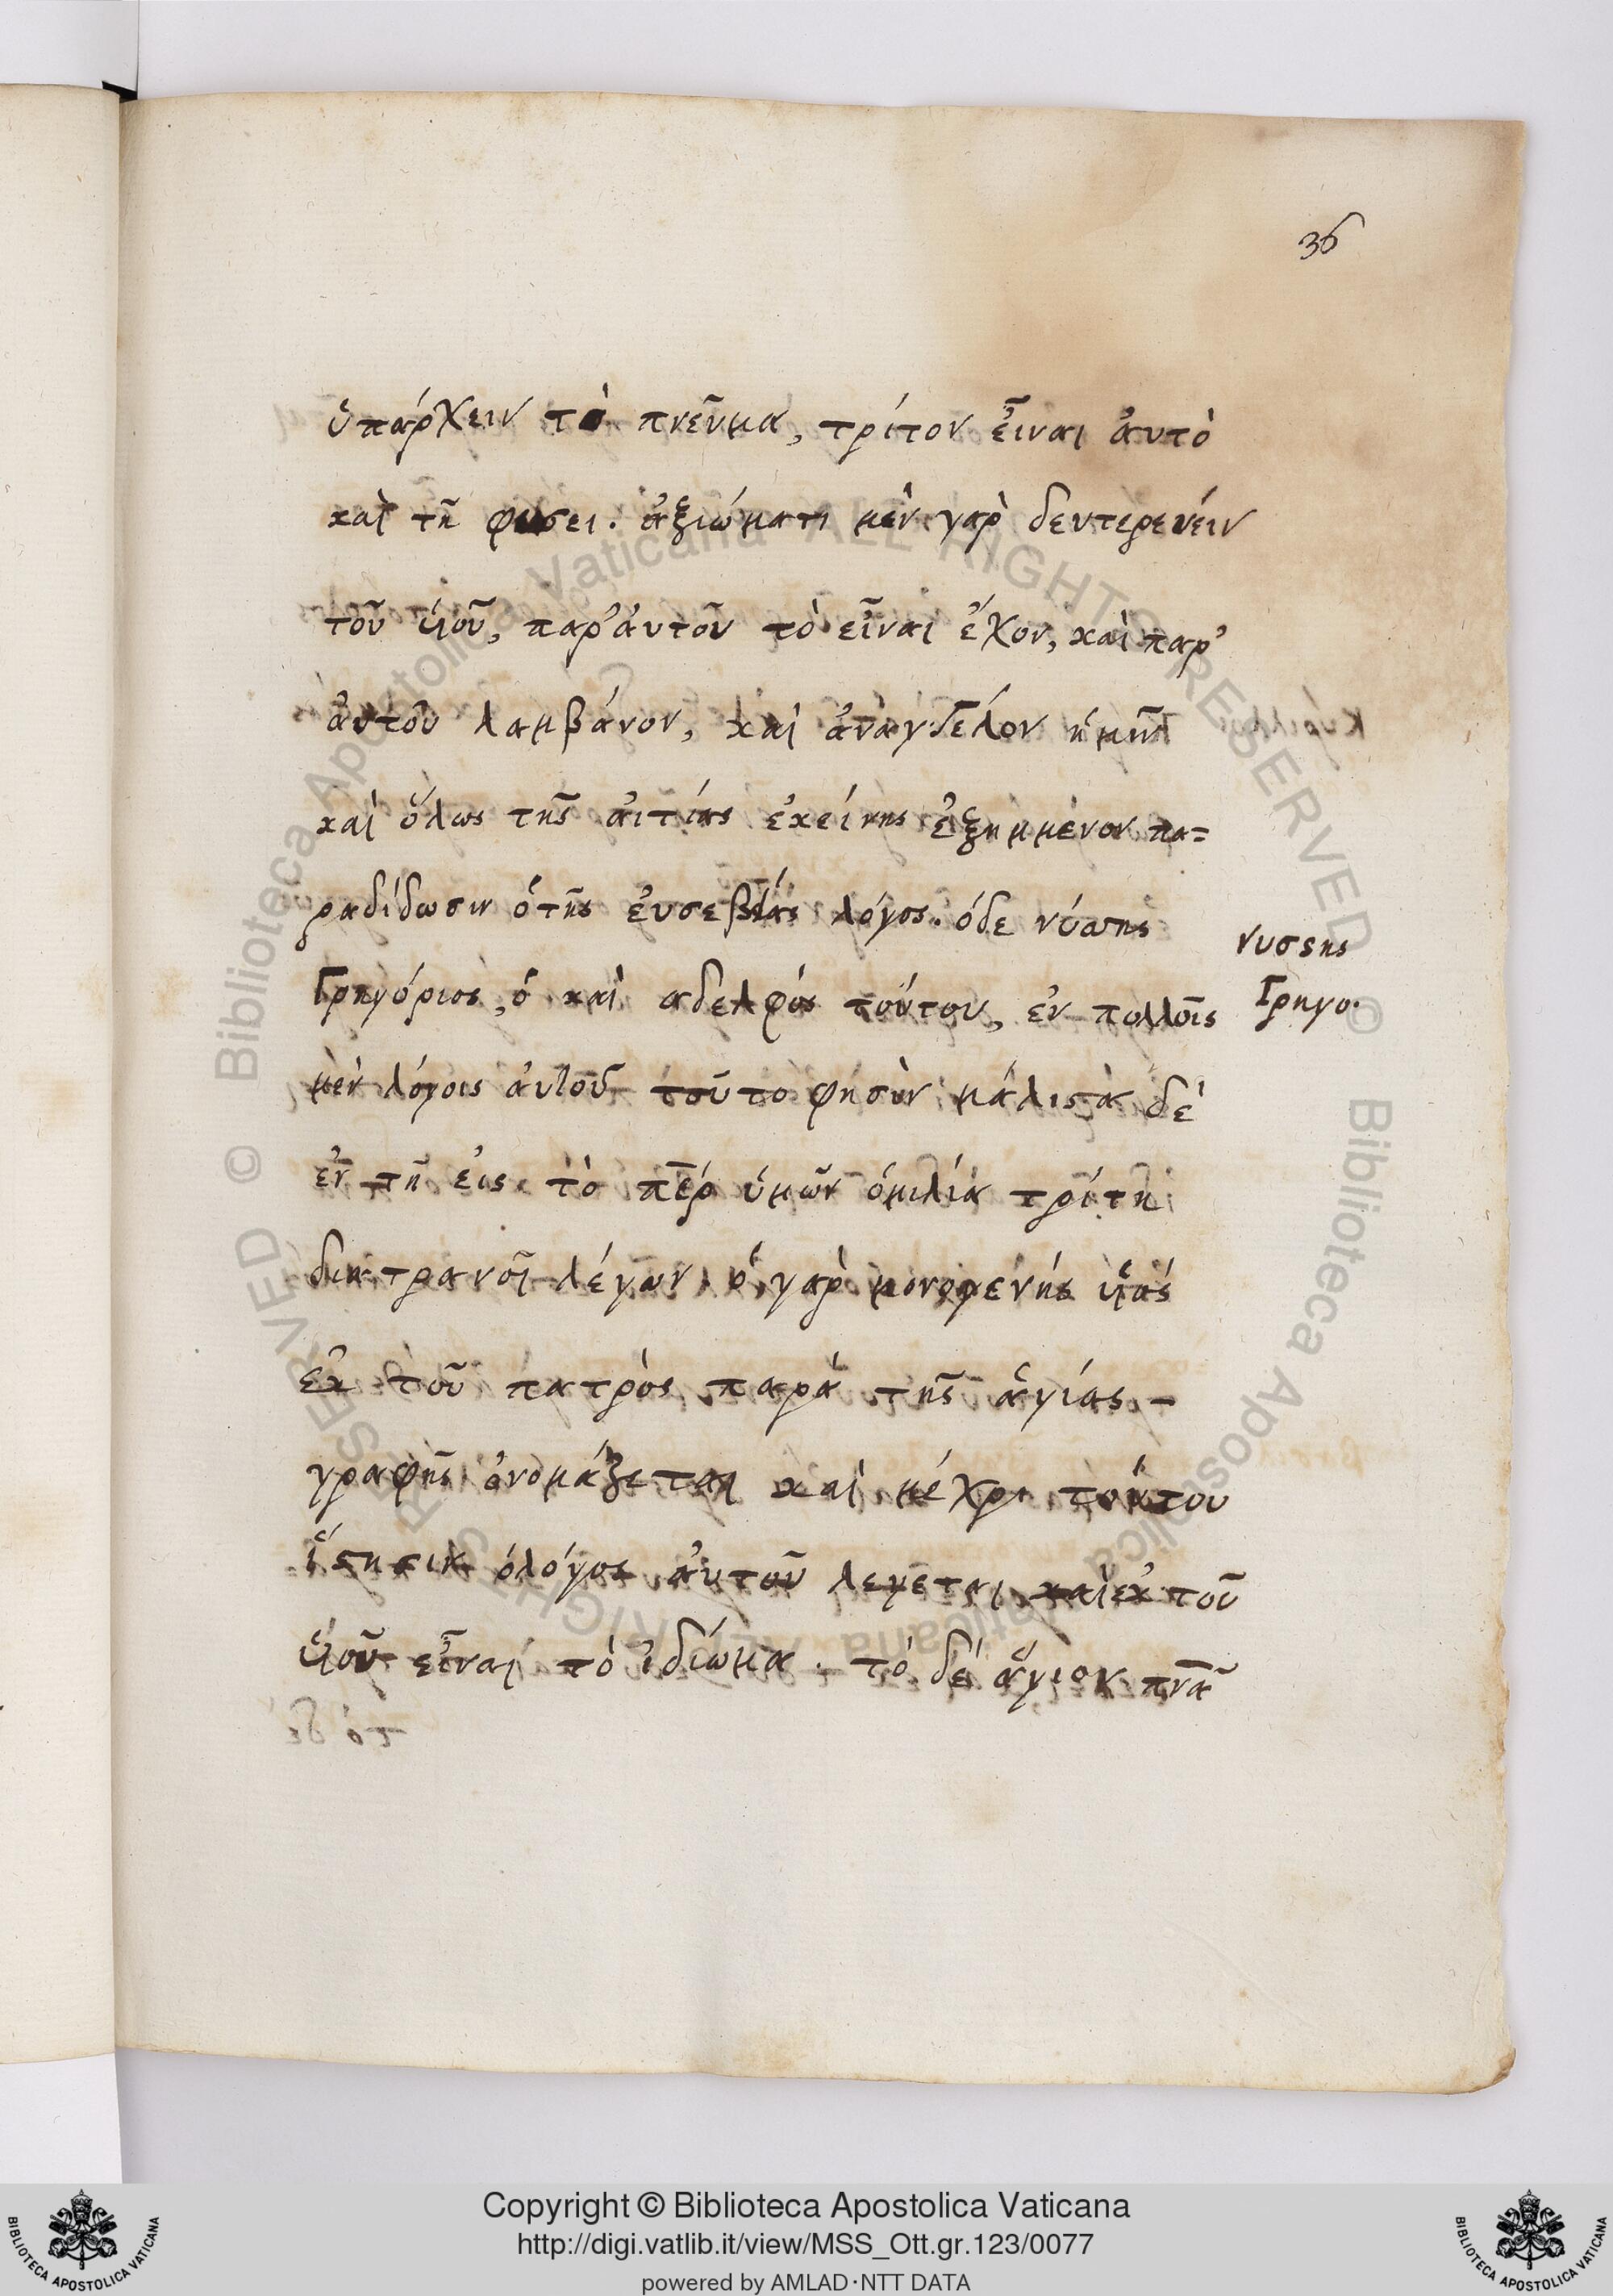 36
ὑπάρχειν τὸ πνεῦμα, τρίτον εἶναι ἀυτὸ
καὶ τῇ φύσει. ἀξιώματι μὲν γὰρ δευτερεύειν
τοῦ ὑιοῦ, παρ' ἀυτοῦ τὸ εἶναι ἔχον, καὶ παρ'
ἀυτοῦ λαμβάνον, καὶ ἀναγγέλον ἡμῖν
καὶ ὅλως τῆς ἀιτίας ἐκείνης ἐξημμένον πα=
ραδίδωσιν ὁ τῆς ἐυσεβείας λόγος. ὁδε νύσης
Γρηγόριος, ὁ καὶ αδελφὸς τούτου, ἐν πολλοῖς
μὲν λόγοις ἀυτοῦ τοῦτο φησὶν μάλιστα δὲ
ἐν τῇ ἐις τὸ περ ὑμῶν ὁμιλία τρίτη
διατρανοῖ λέγων. ὁ γὰρ μονογενὴς ὑιὸς
ἐκ τοῦ πατρὸς παρὰ τῆς ἁγίας -
γραφῆς ὀνομάζεται καὶ μέχρι τούτου
ἵστησιν ὁ λόγος ἀυτοῦ λεγεται καὶ ἐκ τοῦ
ὑιοῦ εἶναι τὸ ἰδίωμα. τὸ δὲ ἅγιον πνᾶ
νυσης
Γρηγο.
Copyright © Biblioteca Apostolica Vaticana
http://digi.vatlib.it/view/MSS_Ott.gr.123/0077
powered by AMLAD·NTT DATA
BIBLIOTECA APOSTOLICA VATICANA
BIBLIOTECA APOSTOLICA VATICANA
© Biblioteca Apostolica Vaticana ALL RIGHTS RESERVED
© Biblioteca Apostolica Vaticana ALL RIGHTS RESERVED